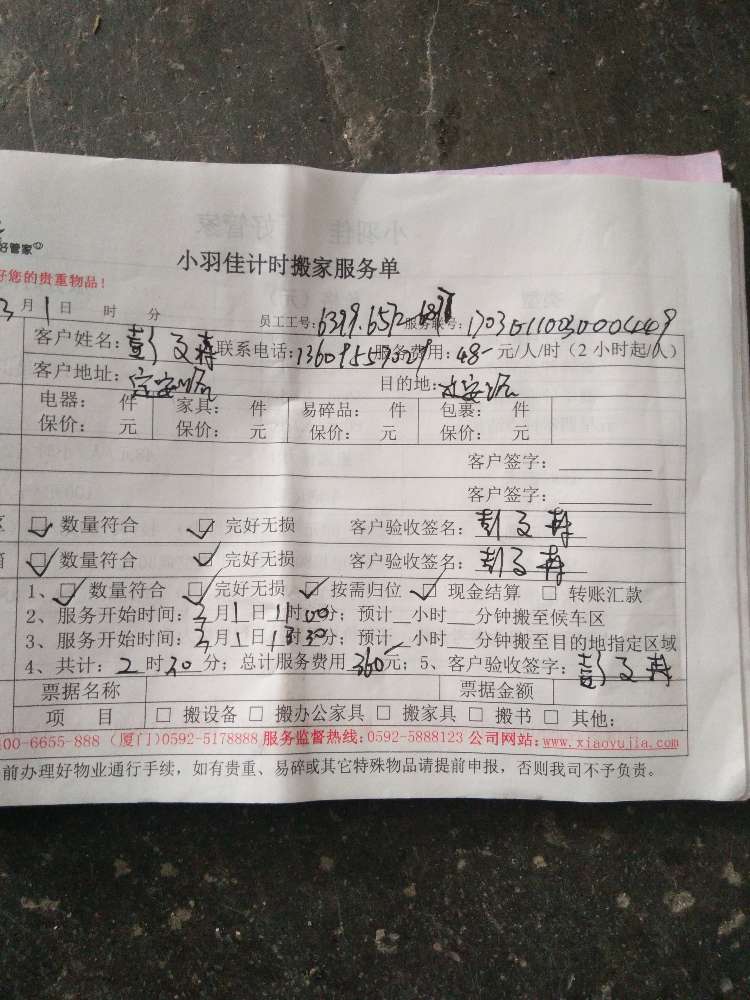 好管家
小羽佳计时搬家服务单
好您的贵重物品！
3月1日 时 分
员工工号：6399.6572 服务联号：
客户姓名： 联系电话： 服务费用：48- 元/人/时（2小时起/人）
客户地址： 目的地：
电器： 件 家具： 件 易碎品： 件 包裹： 件
保价： 元 保价： 元 保价： 元 保价： 元
客户签字：
客户签字：
区 数量符合 完好无损 客户验收签名：彭文
箱 数量符合 完好无损 客户验收签名：彭文
1、 数量符合 完好无损 按需归位 现金结算 转账汇款
2、服务开始时间：3月1日11时00分；预计__小时___分钟搬至候车区
3、服务开始时间：3月1日13时30分；预计__小时___分钟搬至目的地指定区域
4、共计：2时30分；总计服务费用360元；5、客户验收签字：彭文
票据名称 票据金额
项 目 □ 搬设备 □ 搬办公家具 □ 搬家具 □ 搬书 □ 其他：
00-6655-888（厦门）0592-5178888 服务监督热线：0592-5888123 公司网站：www.xiaoyujia.com
前办理好物业通行手续，如有贵重、易碎或其它特殊物品请提前申报，否则我司不予负责。